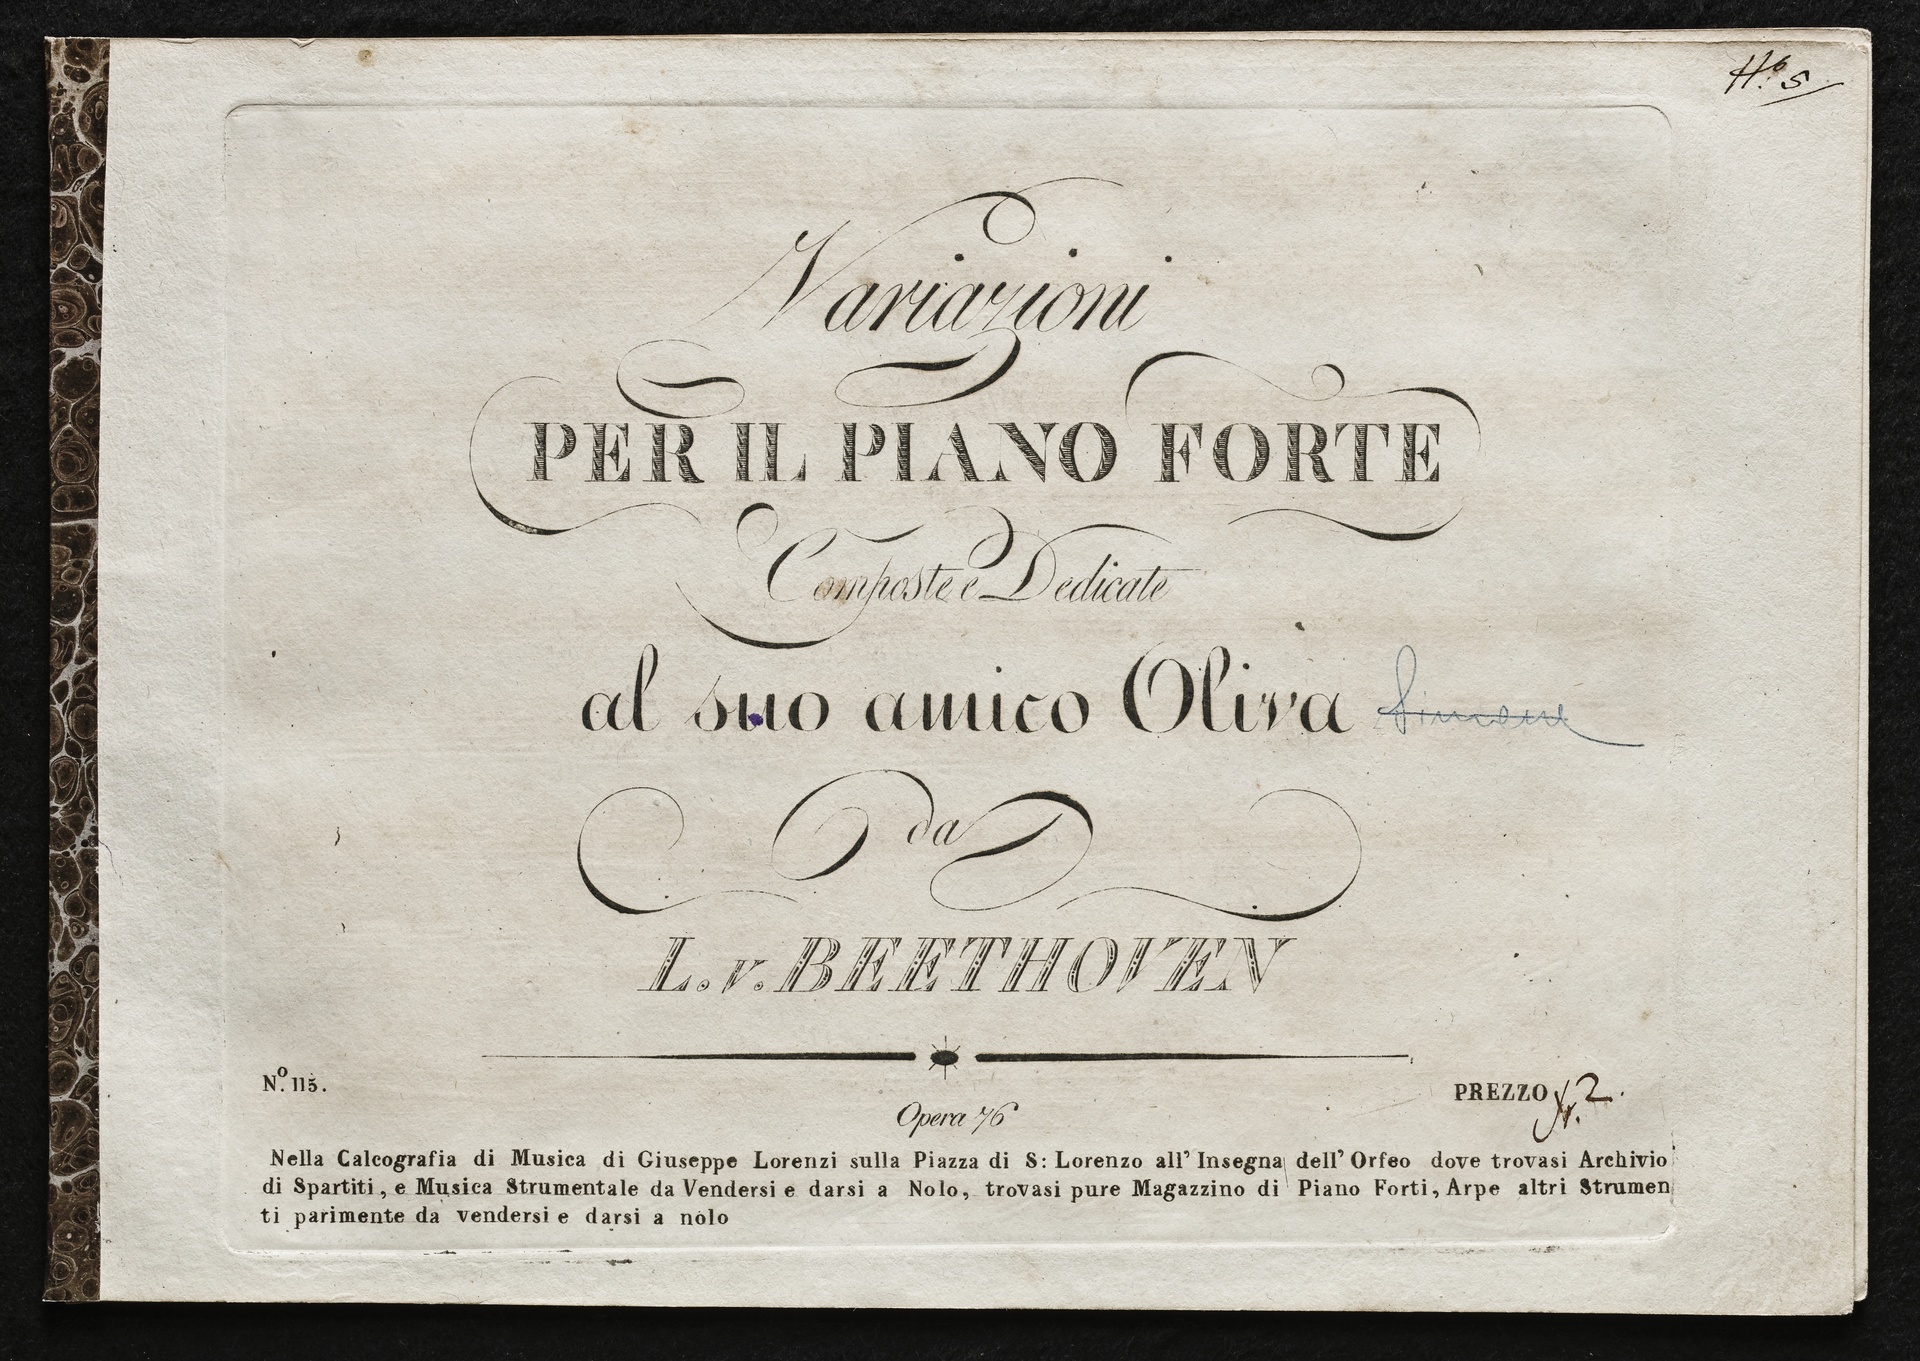 H.º 5
Variazioni
PER IL PIANO FORTE
Composte e Dedicate
al suo amico Oliva
da
L. v. BEETHOVEN
N.º 115.
PREZZO 2.
Opera 76
Nella Calcografia di Musica di Giuseppe Lorenzi sulla Piazza di S: Lorenzo all' Insegna dell' Orfeo dove trovasi Archivio
di Spartiti, e Musica Strumentale da Vendersi e darsi a Nolo, trovasi pure Magazzino di Piano Forti, Arpe altri Strumen
ti parimente da vendersi e darsi a nolo